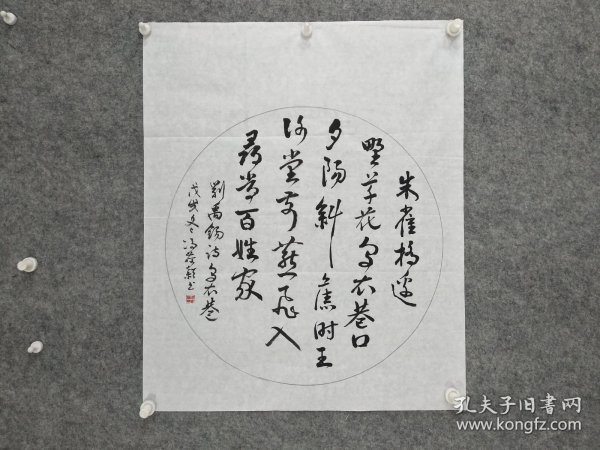 朱雀橋边
野草花乌衣巷口
夕陽斜旧時王
谢堂前燕飛入
尋常百姓家
劉禹錫诗乌衣巷
戊戌冬冯荣轩书
孔夫子旧书网
www.kongfz.com